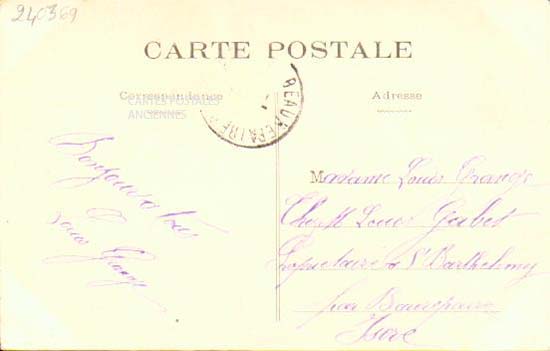 240369
CARTE POSTALE
Correspondance
Adresse
CARTES POSTALES
ANCIENNES
BEAUREPAIRE
Bonjour à tous
Louis Grange
Madame Louis Grange
Chez M Louis Gabet
Propriétaire à St Barthelemy
par Beaurepaire
Isère